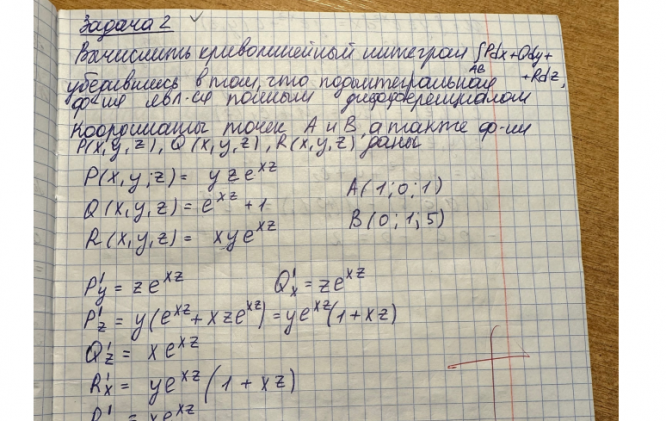 Задача 2
Вычислить криволинейный интеграл ∫Pdx+Qdy+
AB
+Rdz,
убедившись в том, что подынтегральная
ф-ция явл-ся полным дифференциалом
Координаты точек A и B, а также ф-ии
P(x,y,z), Q(x,y,z), R(x,y,z) даны
P(x,y,z) = yze^{xz}
A(1;0;1)
Q(x,y,z) = e^{xz}+1
B(0;1;5)
R(x,y,z) = xye^{xz}
P'_y = ze^{xz} Q'_x = ze^{xz}
P'_z = y(e^{xz}+xze^{xz}) = ye^{xz}(1+xz)
Q'_z = xe^{xz}
R'_x = ye^{xz}(1+xz)
R' = xe^{xz}